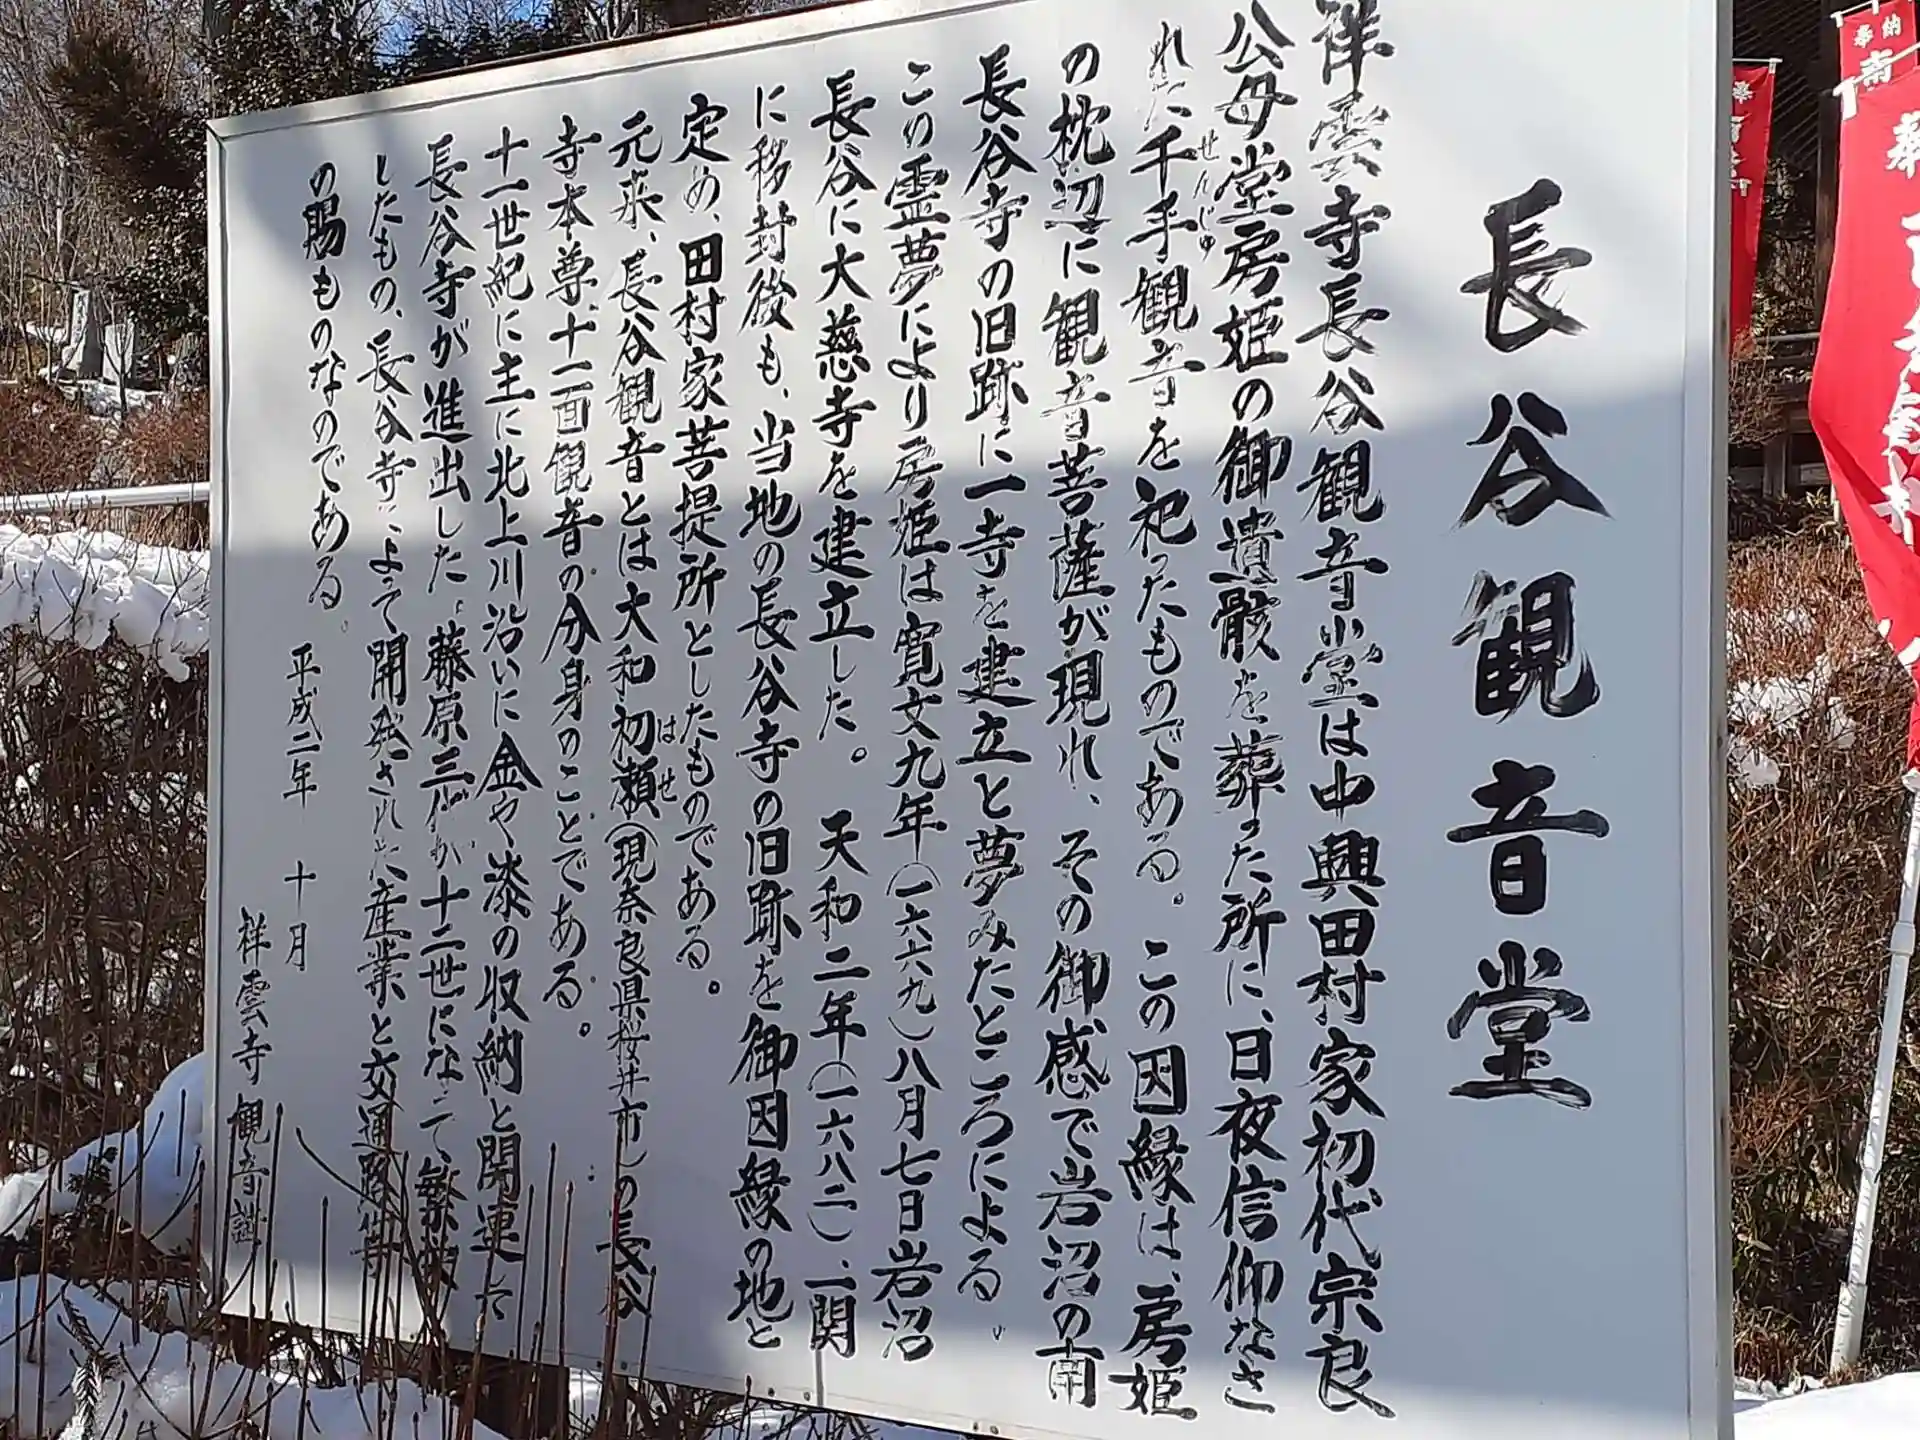 長谷観音堂
祥雲寺長谷観音堂は中興田村家初代宗良
公母堂房姫の御遺骸を葬った所に、日夜信仰なさ
れた千手観音を祀ったものである。この因縁は、房姫
せんじゅ
の枕辺に観音菩薩が現れ、その御感で岩沼の南
長谷寺の旧跡に一寺を建立と夢みたところによる。
この霊夢により房姫は寛文九年(一六六九)八月七日岩沼
長谷に大慈寺を建立した。 天和二年(一六八二)、一関
に移封後も、当地の長谷寺の旧跡を御因縁の地と
定め、田村家菩提所としたものである。
元来、長谷観音とは大和初瀬(現奈良県桜井市)の長谷
はせ
寺本尊、十一面観音の分身のことである。
十一世紀に主に北上川沿いに金や漆の収納と関連して
長谷寺が進出した。藤原三代が十二世になって繁
したもの、長谷寺によって開発された産業と交通路等
の賜ものなのである。
平成二年 十月
祥雲寺 観音講
奉納
奉